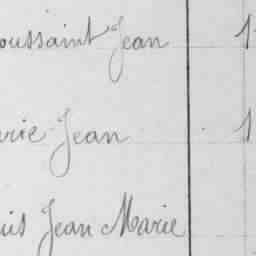 oussaint Jean 1
arie Jean 1
uis Jean Marie